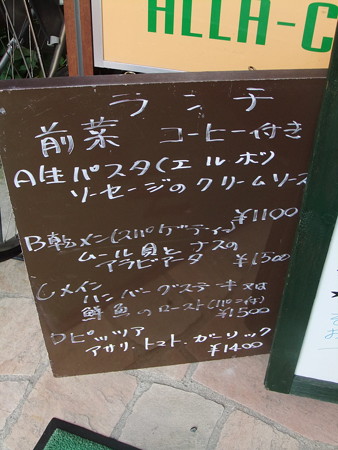 ALLA-C
ランチ
前菜 コーヒー付き
A生パスタ(エルボ)
ソーセージのクリームソース
¥1100
B乾メン(スパゲティー)
ムール貝とナスの
アラビアータ ¥1300
Cメイン
ハンバーグステーキ又は
鮮魚のロースト(パン付)
¥1500
Dピッツァ
アサリ.トマト.ガーリック
¥1400